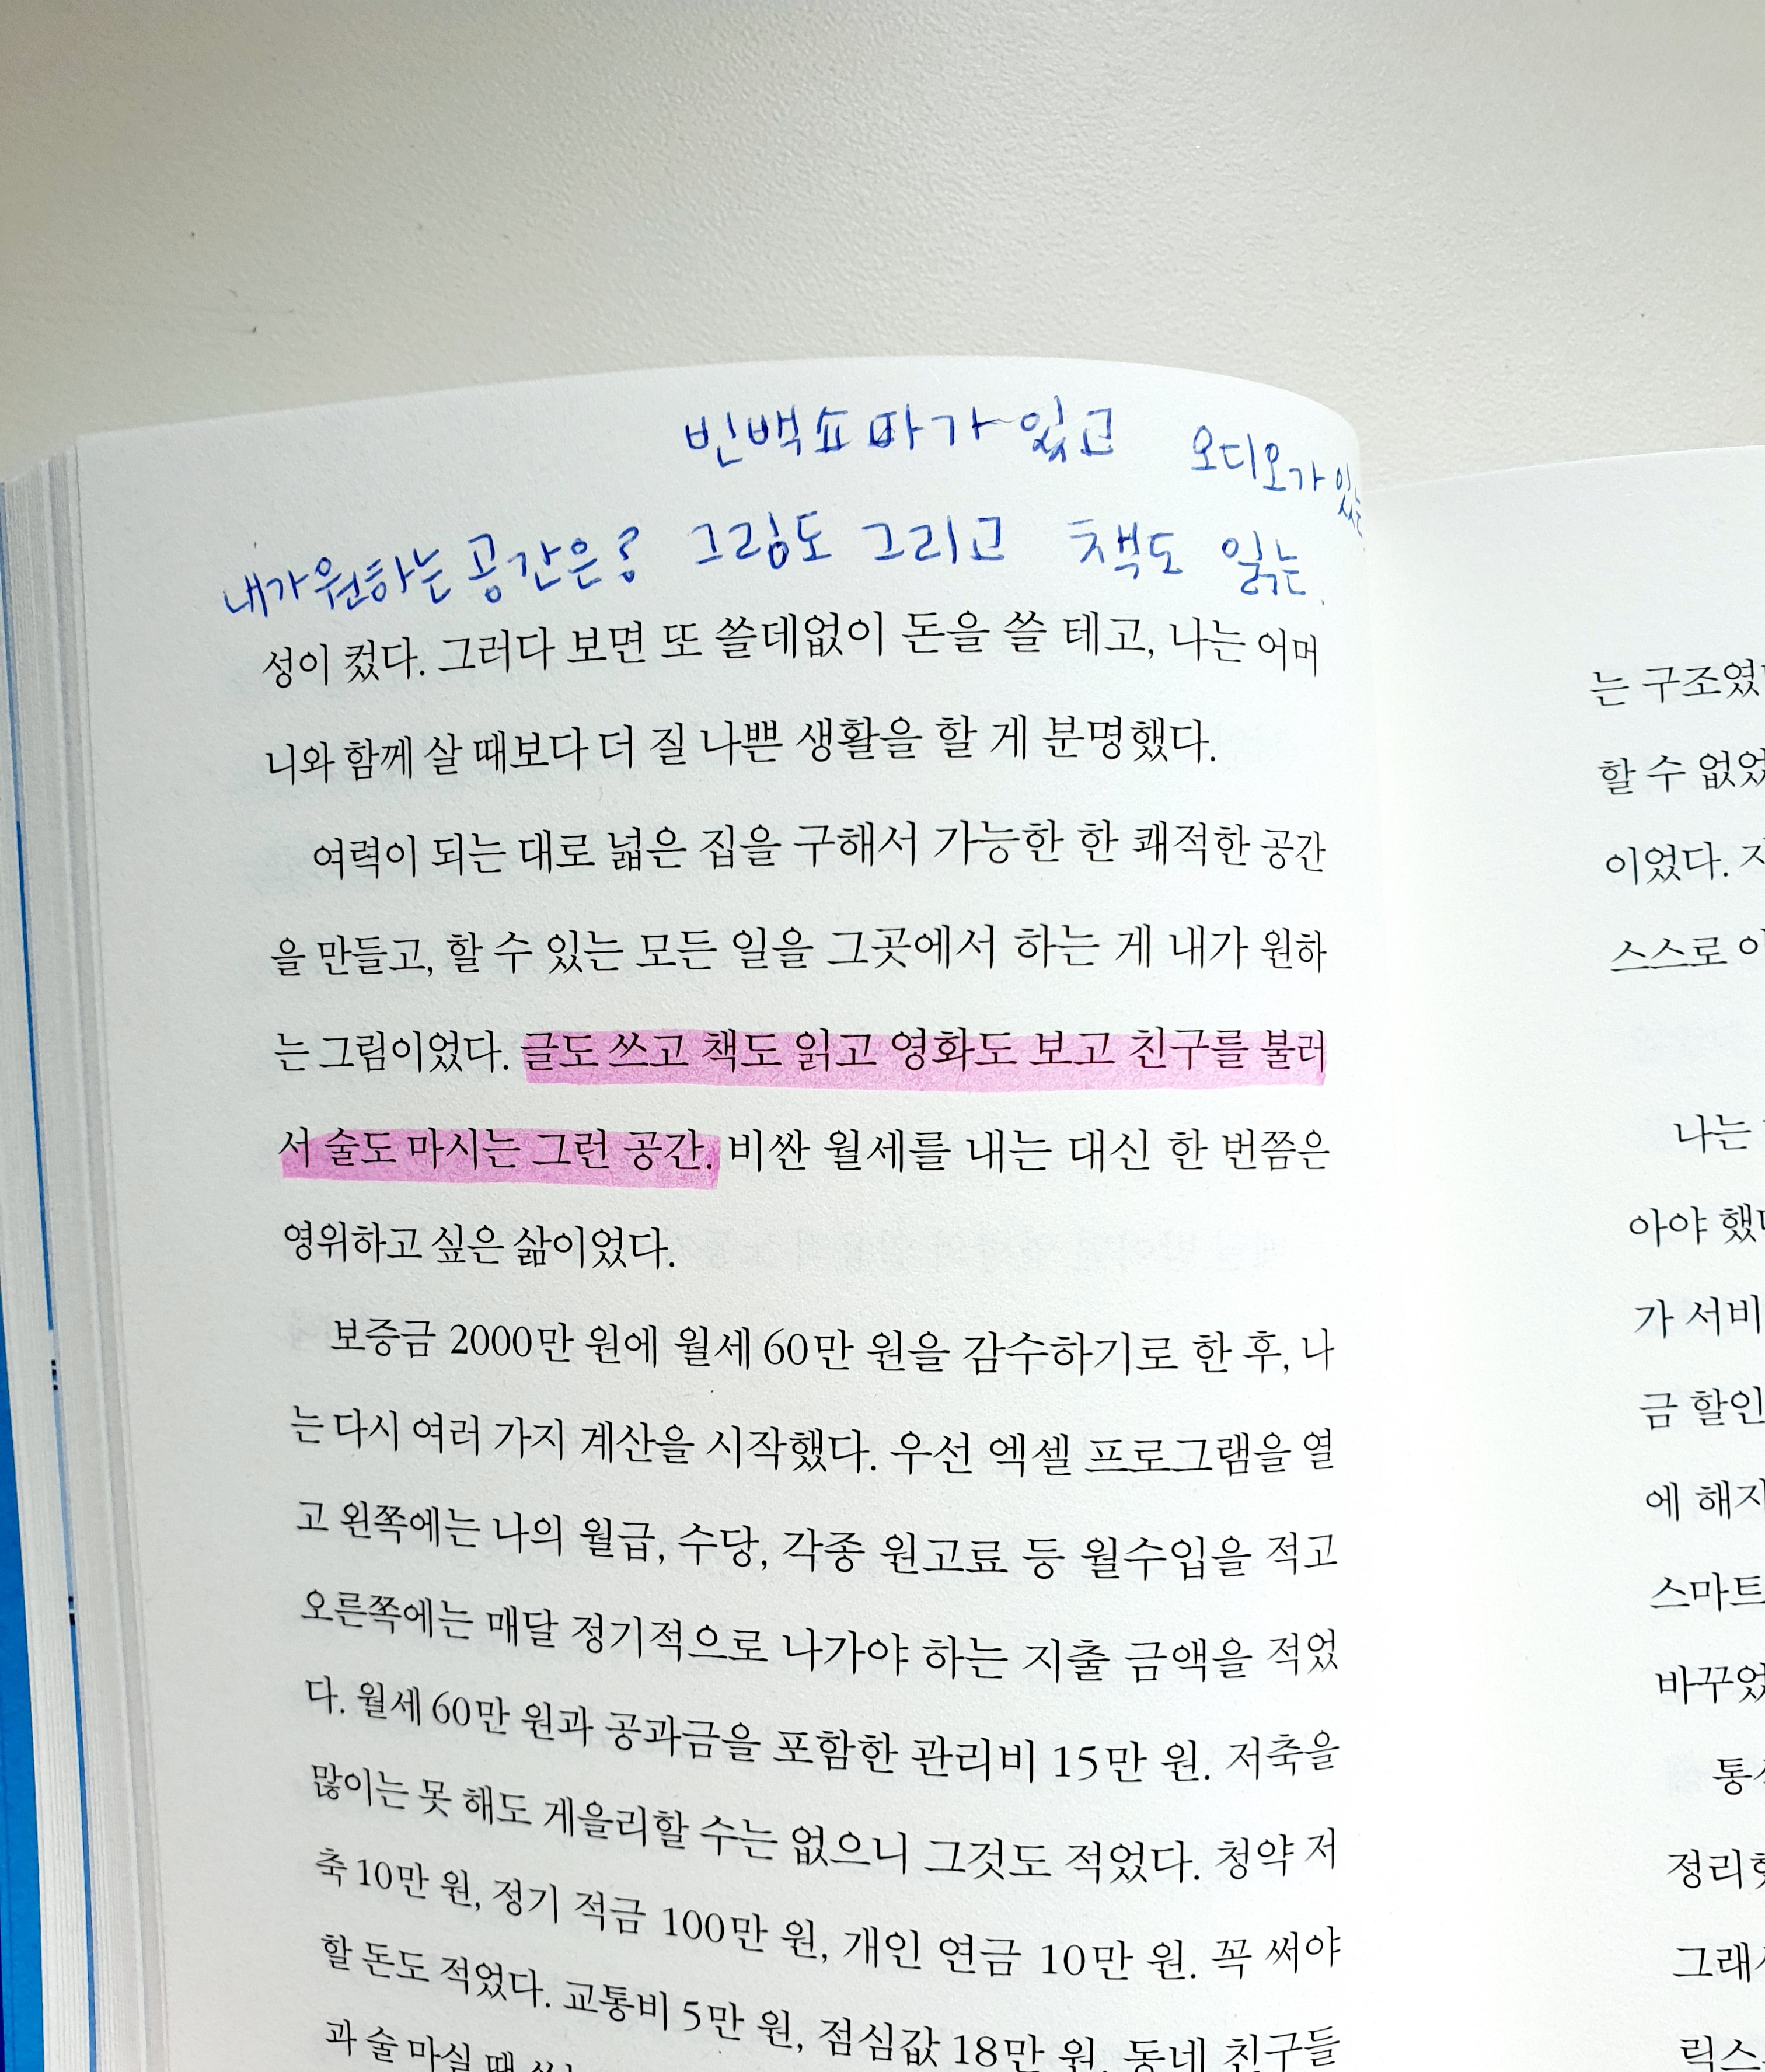 빈백쇼파가 있고 오디오가 있는
내가 원하는 공간은? 그림도 그리고 책도 읽는
성이 컸다. 그러다 보면 또 쓸데없이 돈을 쓸 테고, 나는 어머
니와 함께 살 때보다 더 질 나쁜 생활을 할 게 분명했다.
여력이 되는 대로 넓은 집을 구해서 가능한 한 쾌적한 공간
을 만들고, 할 수 있는 모든 일을 그곳에서 하는 게 내가 원하
는 그림이었다. 글도 쓰고 책도 읽고 영화도 보고 친구를 불러
서 술도 마시는 그런 공간. 비싼 월세를 내는 대신 한 번쯤은
영위하고 싶은 삶이었다.
보증금 2000만 원에 월세 60만 원을 감수하기로 한 후, 나
는 다시 여러 가지 계산을 시작했다. 우선 엑셀 프로그램을 열
고 왼쪽에는 나의 월급, 수당, 각종 원고료 등 월수입을 적고
오른쪽에는 매달 정기적으로 나가야 하는 지출 금액을 적었
다. 월세 60만 원과 공과금을 포함한 관리비 15만 원. 저축을
많이는 못 해도 게을리할 수는 없으니 그것도 적었다. 청약 저
축 10만 원, 정기 적금 100만 원, 개인 연금 10만 원. 꼭 써야
할 돈도 적었다. 교통비 5만 원, 점심값 18만 원, 동네 친구들
과 술 마실 때
는 구조였
할 수 없었
이었다.
스스로
나는
아야 했
가 서비
금 할인
에 해지
스마트
바꾸었
정리
그래
릭스